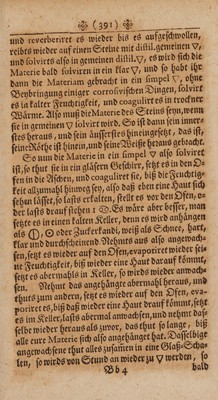 (391)
und reverberiret es wieder bis es aufgeschwollen,
reibts wieder auf einen Steine mit distil. gemeinen ▽,
und solvirts also in gemeinen distil. ▽, es wird sich die
Materie bald solviren in ein klar ▽, und so habt ihr
dann die Materiam gebracht in ein simpel ▽, ohne
Beybringung einiger corrosivischen Dingen, solvirt
es in kalter Feuchtigkeit, und coagulirt es in trockner
Wärme. Also muß die Materie des Steins seyn, wenn
sie in gemeinen ▽ solvirt wird. So ist dann ihr inner-
stes heraus, und sein äusserstes hineingesetzt, das ist,
seine Röthe ist hinein, und seine Weiße heraus gebracht.
So nun die Materie in ein simpel ▽ also solvirt
ist, so thut sie in ein gläsern Geschirr, setzt es in den O-
fen in die Aschen, und coaguliret sie, biß die Feuchtig-
keit allzumahl hinweg sey, also daß eben eine Haut sich
sehen lässet, so lasts erkalten, stellt es vor den Ofen, es
der lasts drauf stehen 1 ☉. Es wäre aber besser, man
setzte es in einen kalten Keller, denn es wird anhängen
als ⦶, ⦶ oder Zuckerkandi, weiß als Schnee, hart,
klar und durchscheinend Nehmts aus also angewach-
sen, setzt es wieder auf den Ofen, evaporiret wieder sei-
ne Feuchtigkeit, biß wieder eine Haut darauf kömmt,
setzt es abermahls in Keller, so wirds wieder anwach-
sen. Nehmt das angehängte abermahl heraus, und
thuts zum andern, setzt es wieder auf den Ofen, eva-
poriret es, biß daß wieder eine Haut drauf kömt, setzt
es im Keller, lasts abermal anwachsen, und nehmt das-
selbe wieder heraus als zuvor, das thut so lange, biß
alle eure Materie sich also angehänget hat. Dasselbige
angewachsene thut alles zusamen in eine Glaß-Scha-
len, so wirds von Stund an wieder zu ▽ werden, so
Bb 4 bald